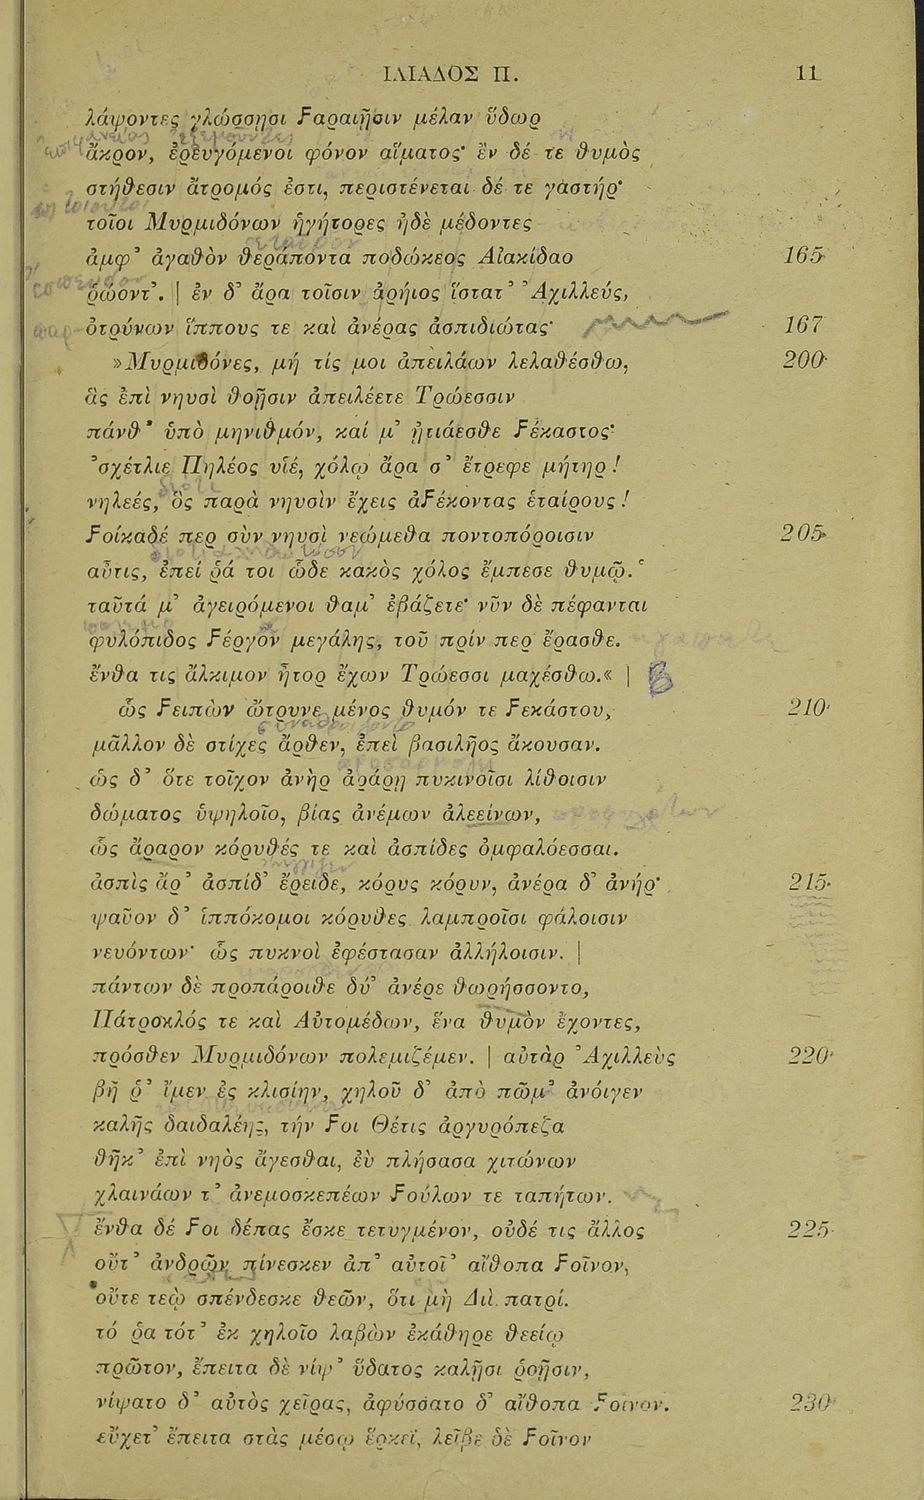 ΙΛΙΑΔΟΣ Π. 11
λάψοντες γλώσσῃσι Ϝαραιῇσιν μέλαν ὕδωρ
ἄκρον, ἐρευγόμενοι φόνον αἵματος· ἐν δέ τε θυμὸς
στήθεσιν ἄτρομός ἐστι, περιστένεται δέ τε γαστήρ·
τοῖοι Μυρμιδόνων ἡγήτορες ἠδὲ μέδοντες
ἀμφ᾽ ἀγαθὸν θεράποντα ποδώκεος Αἰακίδαο 165
ῥώοντ᾽. | ἐν δ᾽ ἄρα τοῖσιν ἀρήιος ἵστατ᾽ Ἀχιλλεύς,
ὀτρύνων ἵππους τε καὶ ἀνέρας ἀσπιδιώτας· 167
»Μυρμιδόνες, μή τίς μοι ἀπειλάων λελαθέσθω, 200
ἃς ἐπὶ νηυσὶ θοῇσιν ἀπειλέετε Τρώεσσιν
πάνθ᾽ ὑπὸ μηνιθμόν, καί μ᾽ ᾐτιάεσθε Ϝέκαστος·
᾽σχέτλιε Πηλέος υἱέ, χόλῳ ἄρα σ᾽ ἔτρεφε μήτηρ!
νηλεές, ὃς παρὰ νηυσὶν ἔχεις ἀϜέκοντας ἑταίρους!
Ϝοίκαδέ περ σὺν νηυσὶ νεώμεθα ποντοπόροισιν 205
αὖτις, ἐπεί ῥά τοι ὧδε κακὸς χόλος ἔμπεσε θυμῷ.῾
ταῦτά μ᾽ ἀγειρόμενοι θαμ᾽ ἐβάζετε· νῦν δὲ πέφανται
φυλόπιδος Ϝέργον μεγάλης, τοῦ πρίν περ ἔρασθε.
ἔνθα τις ἄλκιμον ἦτορ ἔχων Τρώεσσι μαχέσθω.« |
ὣς Ϝειπὼν ὤτρυνε μένος θυμόν τε Ϝεκάστου, 210
μᾶλλον δὲ στίχες ἄρθεν, ἐπεὶ βασιλῆος ἄκουσαν.
ὡς δ᾽ ὅτε τοῖχον ἀνὴρ ἀράρῃ πυκινοῖσι λίθοισιν
δώματος ὑψηλοῖο, βίας ἀνέμων ἀλεείνων,
ὣς ἄραρον κόρυθές τε καὶ ἀσπίδες ὀμφαλόεσσαι.
ἀσπὶς ἄρ᾽ ἀσπίδ᾽ ἔρειδε, κόρυς κόρυν, ἀνέρα δ᾽ ἀνήρ· 215
ψαῦον δ᾽ ἱππόκομοι κόρυθες λαμπροῖσι φάλοισιν
νευόντων· ὣς πυκνοὶ ἐφέστασαν ἀλλήλοισιν. |
πάντων δὲ προπάροιθε δύ᾽ ἀνέρε θωρήσσοντο,
Πάτροκλός τε καὶ Αὐτομέδων, ἕνα θυμὸν ἔχοντες,
πρόσθεν Μυρμιδόνων πολεμιζέμεν. | αὐτὰρ Ἀχιλλεὺς 220
βῆ ῥ᾽ ἴμεν ἐς κλισίην, χηλοῦ δ᾽ ἀπὸ πῶμ᾽ ἀνόιγεν
καλῆς δαιδαλέης, τήν Ϝοι Θέτις ἀργυρόπεζα
θῆκ᾽ ἐπὶ νηὸς ἄγεσθαι, ἐὺ πλήσασα χιτώνων
χλαινάων τ᾽ ἀνεμοσκεπέων Ϝούλων τε ταπήτων.
ἔνθα δέ Ϝοι δέπας ἔσκε τετυγμένον, οὐδέ τις ἄλλος 225
οὔτ᾽ ἀνδρῶν πίνεσκεν ἀπ᾽ αὐτοῖ᾽ αἴθοπα Ϝοῖνον,
οὔτε τεῳ σπένδεσκε θεῶν, ὅτι μὴ Διὶ πατρί.
τό ῥα τότ᾽ ἐκ χηλοῖο λαβὼν ἐκάθηρε θεείῳ
πρῶτον, ἔπειτα δὲ νίψ᾽ ὕδατος καλῇσι ῥοῇσιν,
νίψατο δ᾽ αὐτὸς χεῖρας, ἀφύσσατο δ᾽ αἴθοπα Ϝοῖνον. 230
εὔχετ᾽ ἔπειτα στὰς μέσῳ ἕρκεϊ, λεῖβε δὲ Ϝοῖνον